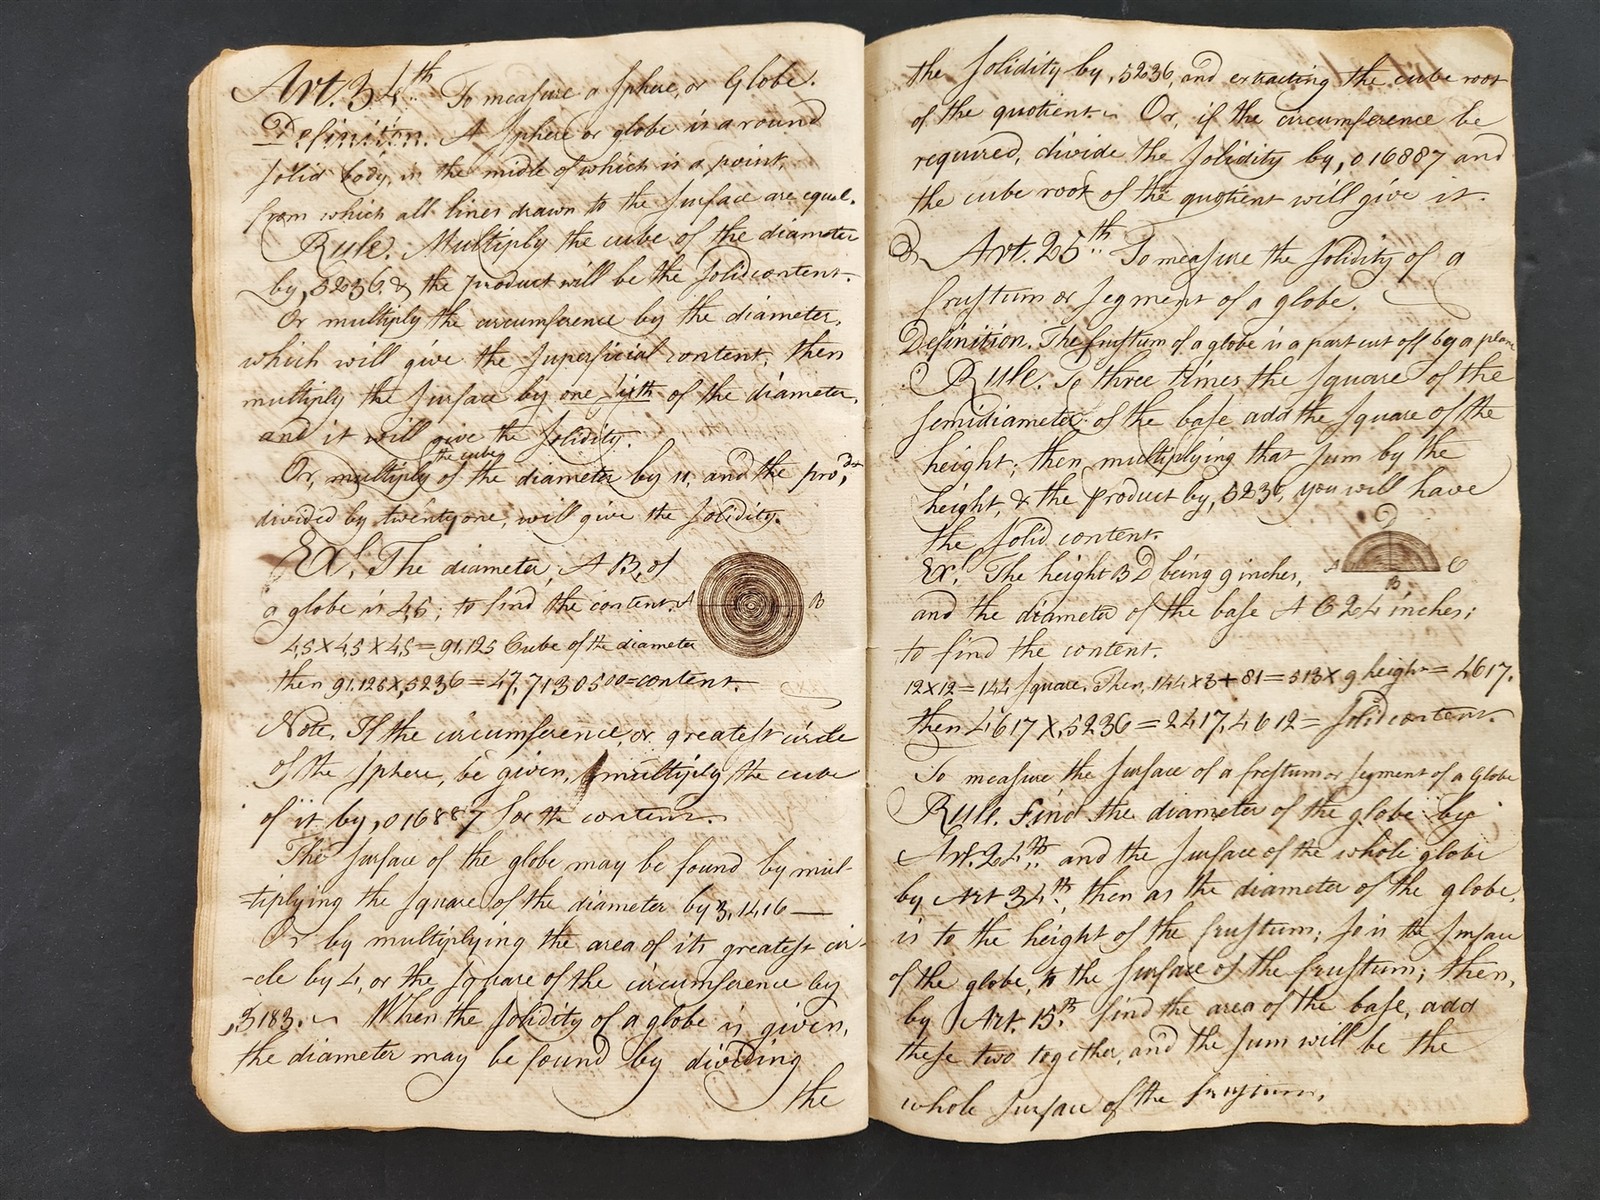 Art. 34th. To measure a Sphere, or Globe.
Definition. A Sphere or globe is a round
solid body, in the midle of which is a point,
from which all lines drawn to the surface are equal.
Rule. Multiply the cube of the diameter
by ,5236. & the product will be the solid content.
Or multiply the circumference by the diameter,
which will give the superficial content, then
multiply the surface by one sixth of the diameter,
and it will give the solidity.
the cube
Or, multiply of the diameter by 11, and the prodt,
divided by twenty one, will give the solidity.
Ex. The diameter, A B, of
a globe is 4,5; to find the content. A B
4,5 X 4,5 X 4,5 = 91,125 Cube of the diameter
then 91,125 X ,5236 = 47,7130500 = content.
Note, If the circumference, or greatest circle
of the sphere, be given, multiply the cube
of it by ,016887 for the content.
The surface of the globe may be found by mul-
-tiplying the square of the diameter by 3,1416 —
Or by multiplying the area of its greatest cir-
-cle by 4, or the square of the circumference by
,3183. When the solidity of a globe is given,
the diameter may be found by dividing
the
the solidity by ,5236, and extracting the cube root
of the quotient. Or, if the circumference be
required, divide the solidity by ,016887 and
the cube root of the quotient will give it.
Art. 25th. To measure the solidity of a
frustum or segment of a globe.
Definition. The frustum of a globe is a part cut off by a plane
Rule. To three times the square of the
semidiameter of the base add the square of the
height; then multiplying that sum by the
height, & the product by ,5236, you will have
the solid content.
D
Ex. The height B D being 9 inches, A C
B
and the diameter of the base A C 24 inches;
to find the content.
12 X 12 = 144 square. Then, 144 X 3 + 81 = 513 X 9 height = 4617.
then 4617 X ,5236 = 2417,4612 = solid content.
To measure the surface of a frustum or segment of a Globe
Rule. Find the diameter of the globe by
Art. 24th. and the surface of the whole globe
by Art 34th, then as the diameter of the globe,
is to the height of the frustum; so is the surface
of the globe, to the surface of the frustum; then,
by Art. 15th find the area of the base, add
these two together, and the sum will be the
whole surface of the frustum.